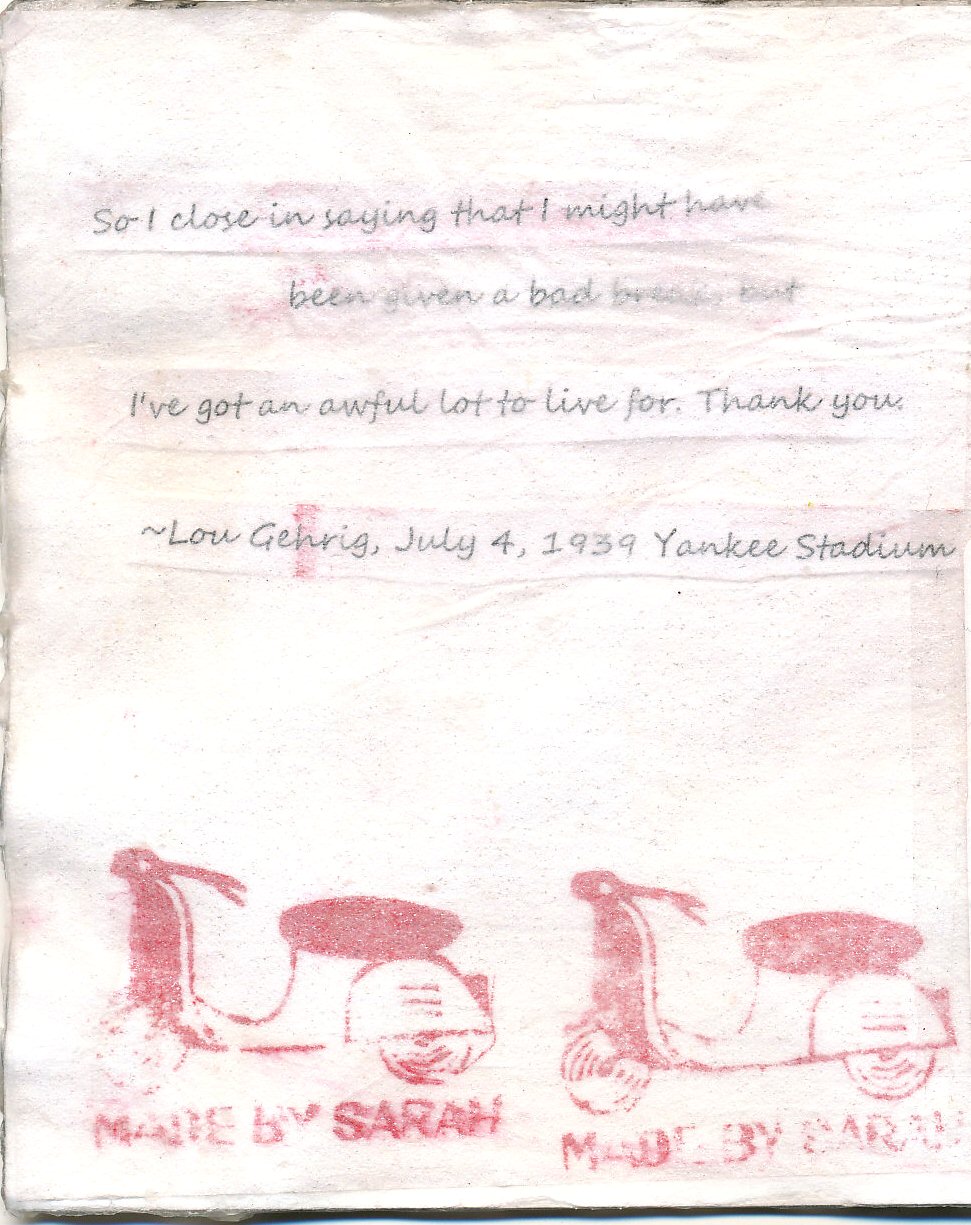 So I close in saying that I might have
been given a bad break, but
I've got an awful lot to live for. Thank you.
~Lou Gehrig, July 4, 1939 Yankee Stadium
MADE BY SARAH
MADE BY SARAH